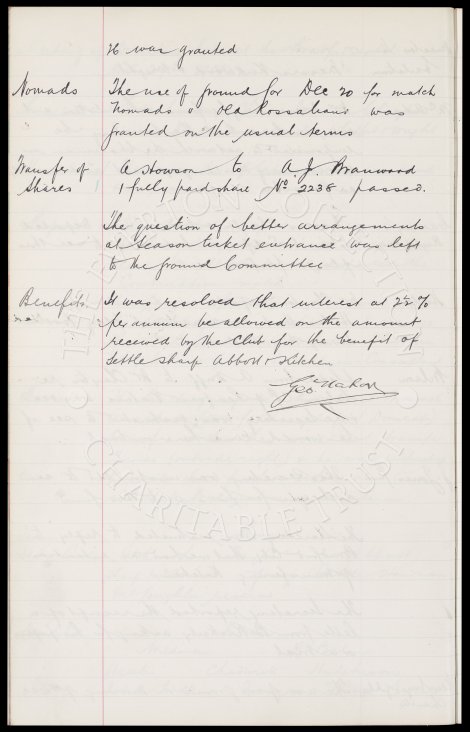 It was granted
Nomads The use of ground for Dec 20 for match
Nomads v Old Rossalians was
granted on the usual terms
Transfer of A Howson to A. J. Branwood
Shares 1 fully paid share No 2238 passed.
The question of better arrangements
at Season ticket entrance was left
to the Ground Committee
Benefits It was resolved that interest at 2½%
per annum be allowed on the amount
received by the Club for the benefit of
Settle Sharp Abbott & Kitchen
Geo Mahon
THE EVERTON COLLECTION
CHARITABLE TRUST